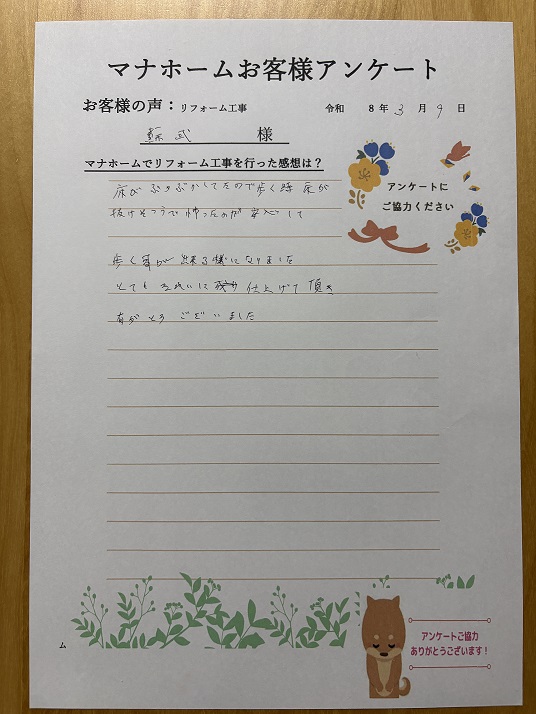 マナホームお客様アンケート
お客様の声：リフォーム工事 令和 8年 3月 9日
蘇武 様
マナホームでリフォーム工事を行った感想は？
床がぶかぶかしてたので歩く時床が
抜けそうで怖ったのが安心して
歩く事が出来る様になりました
とてもきれいに 仕上げて頂き
有がとうございました
アンケートに
ご協力ください
アンケートご協力
ありがとうございます！
ム